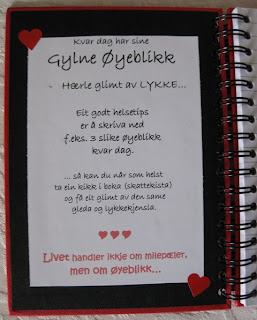 Kvar dag har sine
Gylne Øyeblikk
- Hærle glimt av LYKKE...
Eit godt helsetips
er å skriva ned
f.eks. 3 slike øyeblikk
kvar dag.
... så kan du når som helst
ta ein kikk i boka (skattekista)
og få eit glimt av den same
gleda og lykkekjensla.
Livet handler ikkje om milepæler,
men om øyeblikk...